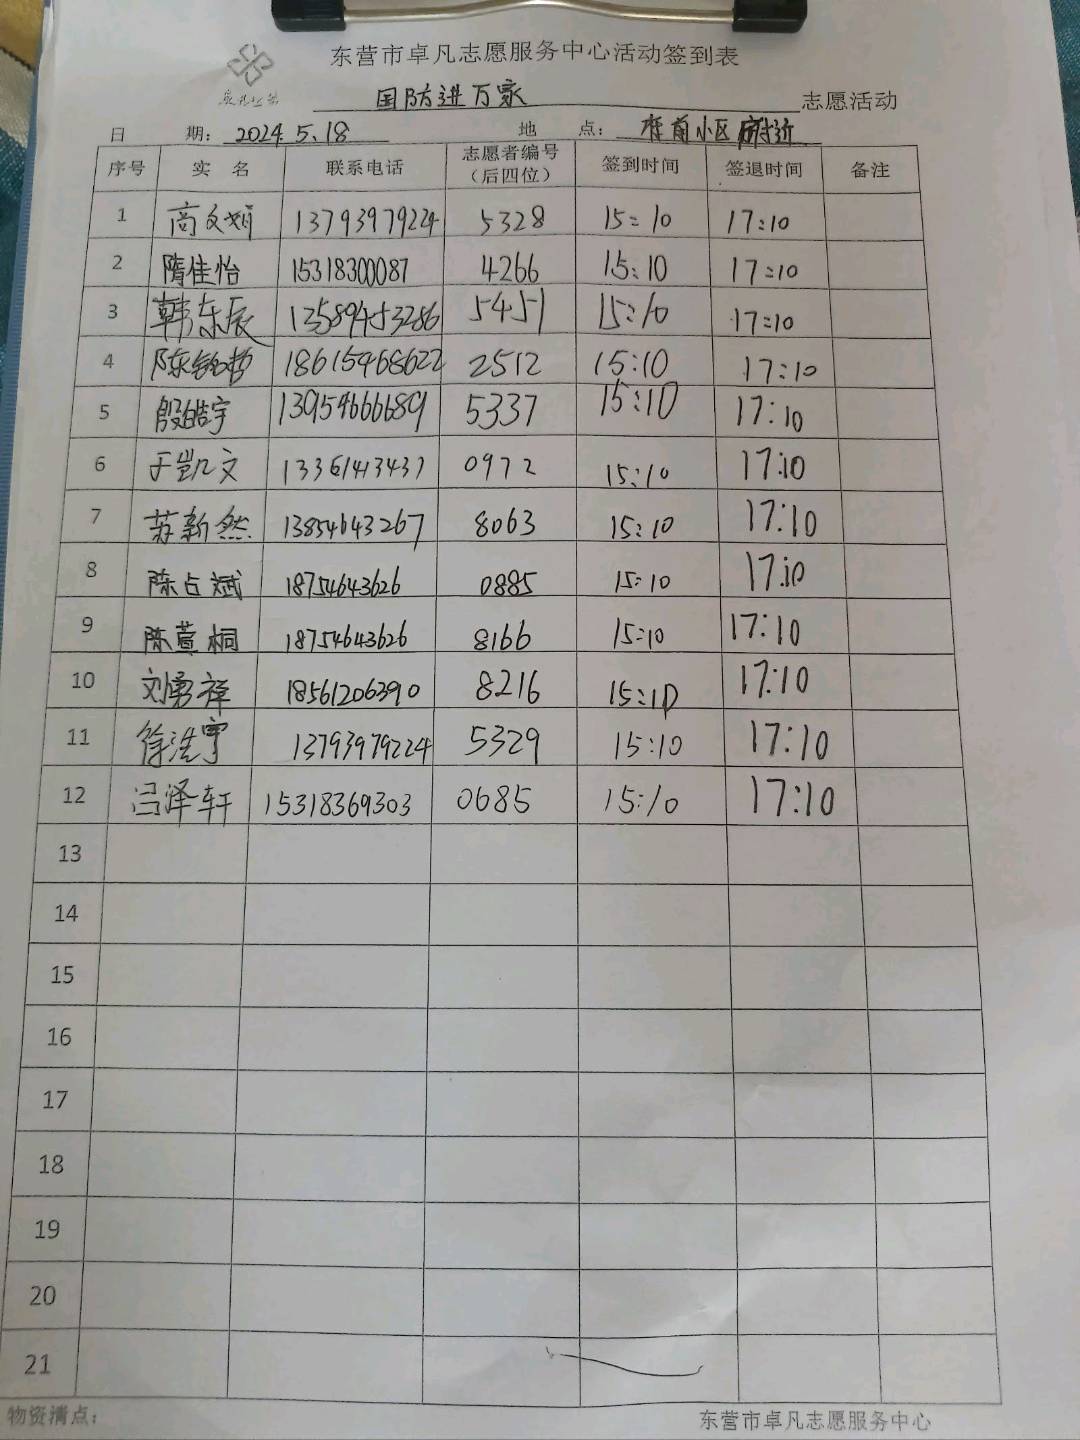 东营市卓凡志愿服务中心活动签到表
国防进万家 志愿活动
日 期: 2024.5.18 地 点: 府前小区附近
序号 实 名 联系电话 志愿者编号（后四位） 签到时间 签退时间 备注
1 高文娟 13793979224 5328 15:10 17:10
2 隋佳怡 15318300087 4266 15:10 17:10
3 韩东辰 13589453286 5451 15:10 17:10
4 陈 哲 18615468622 2512 15:10 17:10
5 殷皓宇 13954666689 5337 15:10 17:10
6 于凯文 13361413437 0972 15:10 17:10
7 苏新然 13854643267 8063 15:10 17:10
8 陈占斌 18754643626 0885 15:10 17:10
9 陈萱桐 18754643626 8166 15:10 17:10
10 刘勇祥 18561206390 8216 15:10 17:10
11 徐浩宇 13793979224 5329 15:10 17:10
12 吕泽轩 15318369303 0685 15:10 17:10
13
14
15
16
17
18
19
20
21
物资清点: 东营市卓凡志愿服务中心